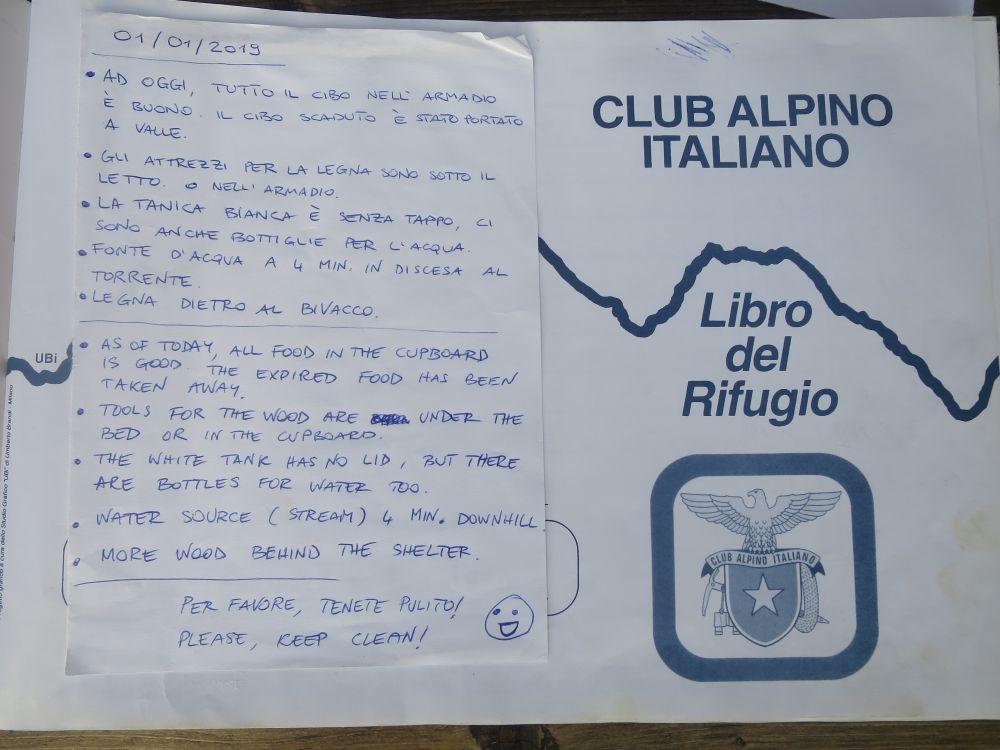 01/01/2019
• AD OGGI, TUTTO IL CIBO NELL'ARMADIO
È BUONO. IL CIBO SCADUTO È STATO PORTATO
A VALLE.
• GLI ATTREZZI PER LA LEGNA SONO SOTTO IL
LETTO. O NELL'ARMADIO.
• LA TANICA BIANCA È SENZA TAPPO, CI
SONO ANCHE BOTTIGLIE PER L'ACQUA.
• FONTE D'ACQUA A 4 MIN. IN DISCESA AL
TORRENTE.
• LEGNA DIETRO AL BIVACCO.
• AS OF TODAY, ALL FOOD IN THE CUPBOARD
IS GOOD. THE EXPIRED FOOD HAS BEEN
TAKEN AWAY.
• TOOLS FOR THE WOOD ARE UNDER THE
BED OR IN THE CUPBOARD.
• THE WHITE TANK HAS NO LID, BUT THERE
ARE BOTTLES FOR WATER TOO.
• WATER SOURCE (STREAM) 4 MIN. DOWNHILL
• MORE WOOD BEHIND THE SHELTER.
PER FAVORE, TENETE PULITO!
PLEASE, KEEP CLEAN!
UBi
grafico a cura dello Studio Grafico "UBi" di Umberto Brandi - Milano
CLUB ALPINO
ITALIANO
Libro
del
Rifugio
CLUB ALPINO ITALIANO